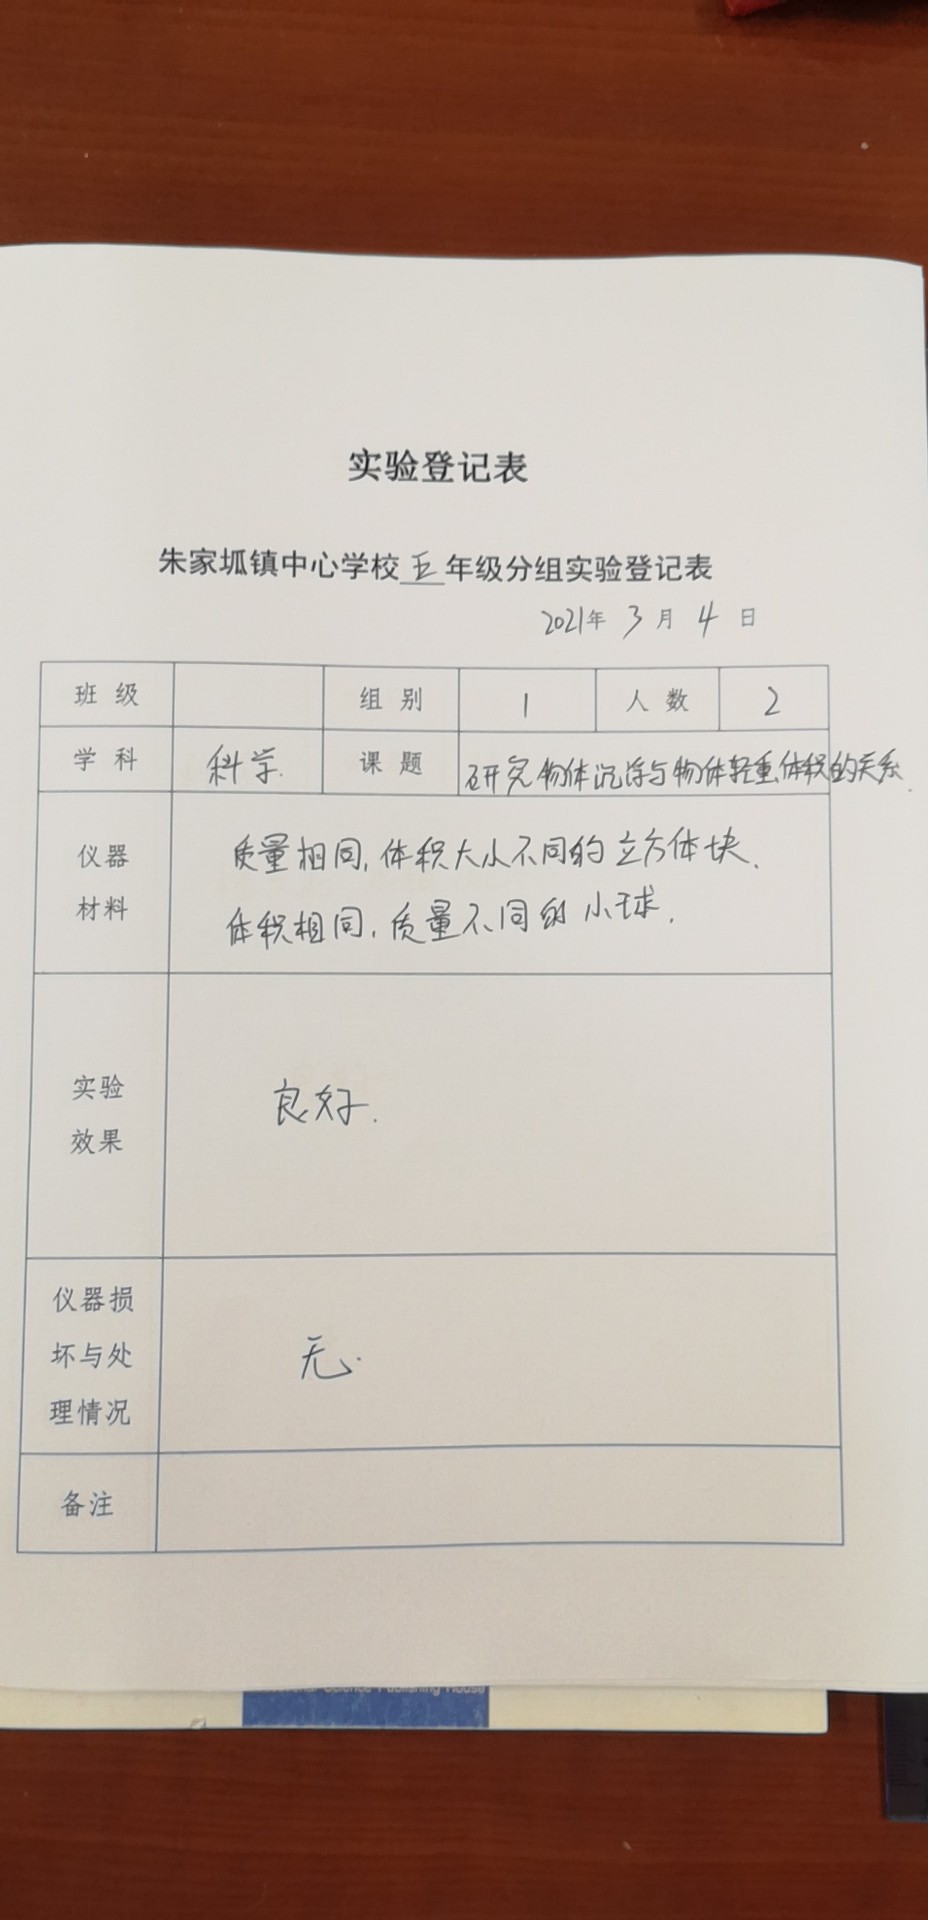 实验登记表
朱家坬镇中心学校五年级分组实验登记表
2021年 3 月 4 日
班 级 组 别 1 人 数 2
学 科 科学. 课 题 研究物体沉浮与物体轻重,体积的关系.
仪器 质量相同,体积大小不同的立方体块.
材料 体积相同,质量不同的小球.
实验 良好.
效果
仪器损
坏与处 无.
理情况
备注
Science Publishing House